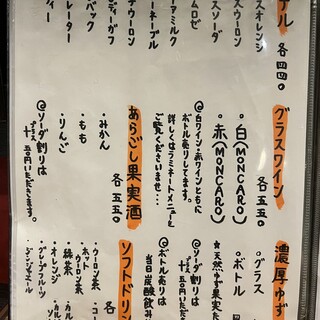 ナル 各440.
スオレンジ
スウーロン
スソーダ
ムロゼ
ーアミルク
ーネーブル
ウーロン
ディーガフ
バック
レーター
ディー
グラスワイン
・白(MONCARO)
・赤(MONCARO)
◎白ワイン・赤ワインともに
ボトル売りしてます。
詳しくはラミネートメニューを
ご覧くださいませ…
あらごし果実酒 各550
・みかん
・もも
・りんご
◎ソーダ割りは
プラス
十五円いただきます。
濃厚ゆず
・グラス
・ボトル
★天然ゆず果実た
◎ソーダ割り
プラス
十五円いただきます。
◎ボトル売りは
当日炭酸飲み
ソフトドリン 各
・ウーロン茶
・ホット
ウーロン茶
・緑茶
・オレンジ
・グレープフルーツ
・ジンジャエール
・コー
・カル
・カル